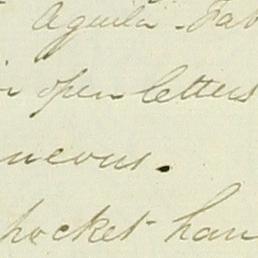 Aguila - Fab
open letters
neous.
pocket han